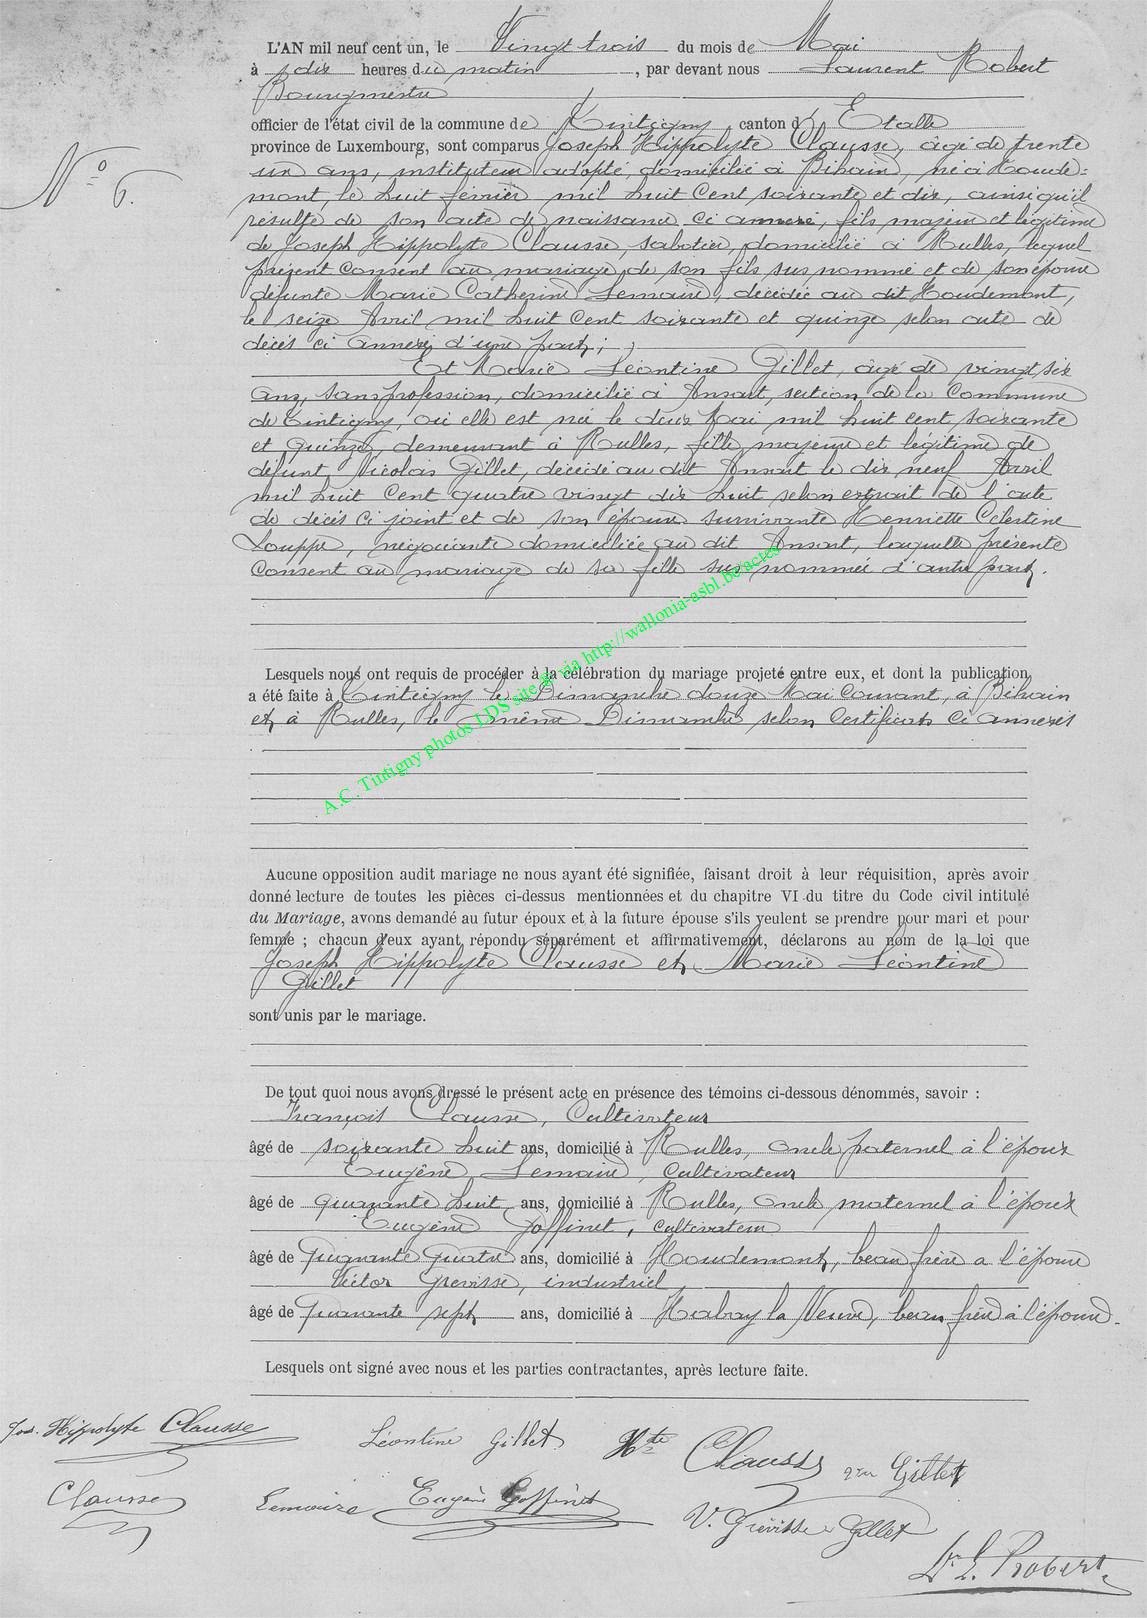 L'AN mil neuf cent un, le Vingt trois du mois de Mai
à dix heures du matin, par devant nous Laurent Robert
Bourgmestre
officier de l'état civil de la commune de Tintigny canton d' Etalle
province de Luxembourg, sont comparus Joseph Hippolyte Clausse, âgé de trente
un ans, instituteur adopté, domicilié à Bihain, né à Houde-
N° 6.
mont, le huit février mil huit cent soixante et dix, ainsi qu'il
résulte de son acte de naissance ci annexé, fils majeur et légitime
de Joseph Hippolyte Clausse, sabotier, domicilié à Rulles, lequel
présent consent au mariage de son fils sus nommé et de son épouse
défunte Marie Catherine Lemaire, décédée au dit Houdemont,
le seize Avril mil huit cent soixante et quinze selon acte de
décès ci annexé, d'une part;
Et Marie Léontine Gillet, âgé de vingt six
ans, sans profession, domicilié à Ansart, section de la Commune
de Tintigny, où elle est né le deux Mai mil huit cent soixante
et quinze, demeurant à Rulles, fille majeure et légitime de
défunt Nicolas Gillet, décédé au dit Ansart le dix neuf Avril
mil huit cent quatre vingt dix huit selon extrait de l'acte
de décès ci joint et de son épouse survivante Henriette Celestine
Louppe, négociante domiciliée au dit Ansart, laquelle présente
consent au mariage de sa fille sus nommée d'autre part.
Lesquels nous ont requis de procéder à la célébration du mariage projeté entre eux, et dont la publication
a été faite à Tintigny le Dimanche douze Mai Courant, à Bihain
et à Rulles, le même Dimanche selon Certificats ci annexés
A.C. Tintigny photos LDS site & via http://wallonia-asbl.be/actes
Aucune opposition audit mariage ne nous ayant été signifiée, faisant droit à leur réquisition, après avoir
donné lecture de toutes les pièces ci-dessus mentionnées et du chapitre VI du titre du Code civil intitulé
du Mariage, avons demandé au futur époux et à la future épouse s'ils veulent se prendre pour mari et pour
femme ; chacun d'eux ayant répondu séparément et affirmativement, déclarons au nom de la loi que
Joseph Hippolyte Clausse et Marie Léontine
Gillet
sont unis par le mariage.
De tout quoi nous avons dressé le présent acte en présence des témoins ci-dessous dénommés, savoir :
François Clausse, Cultivateur
âgé de soixante huit ans, domicilié à Rulles, oncle paternel à l'époux
Eugène Lemaire, cultivateur
âgé de quarante huit ans, domicilié à Rulles, oncle maternel à l'époux
Eugène Goffinet, cultivateur
âgé de Quarante Quatre ans, domicilié à Houdemont, beau frère à l'épouse
Victor Grevisse, industriel
âgé de Quarante sept ans, domicilié à Habay la Neuve, beau frère à l'épouse.
Lesquels ont signé avec nous et les parties contractantes, après lecture faite.
Jos. Hippolyte Clausse Léontine Gillet Hte Clausse Gillet
Clausse Lemaire Eugène Goffinet V. Grévisse-Gillet
L. Robert